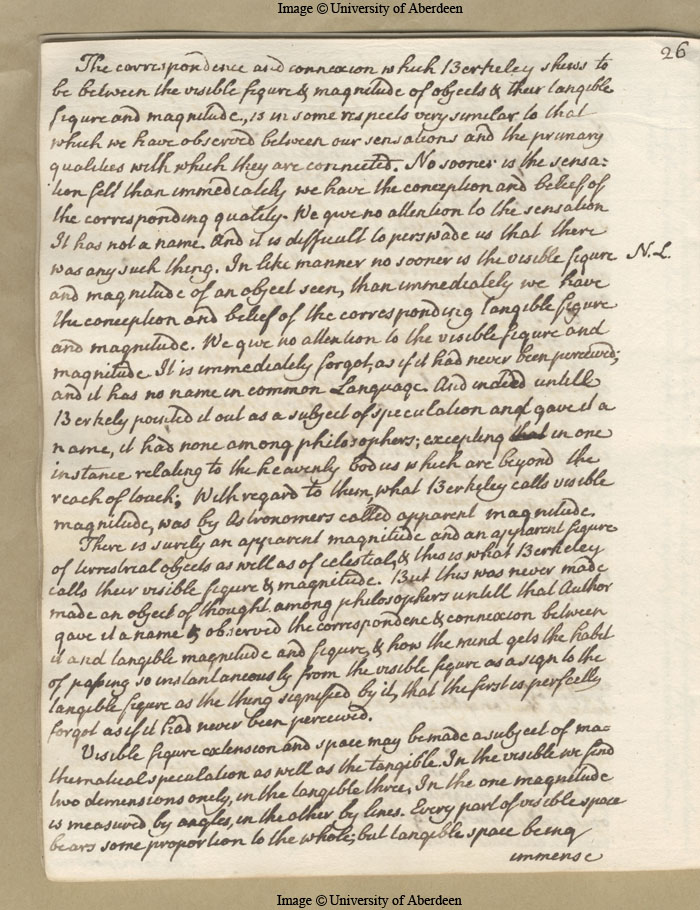 Image © University of Aberdeen
26
The correspondence and connexion which Berkeley shews to
be between the visible figure & magnitude of objects & their tangible
figure and magnitude, is in some respects very similar to that
which we have observed between our sensations and the primary
qualities with which they are connected. No sooner is the sensa-
tion felt than immediately we have the conception and belief of
the corresponding quality. We give no attention to the sensation
It has not a name. And it is difficult to perswade us that there
was any such thing. In like manner no sooner is the visible figure N.L.
and magnitude of an object seen, than immediately we have
the conception and belief of the corresponding tangible figure
and magnitude. We give no attention to the visible figure and
magnitude. It is immediately forgot, as if it had never been perceived;
and it has no name in common Language. And indeed untill
Berkely pointed it out as a subject of speculation and gave it a
name, it had none among philosophers; excepting that in one
instance relating to the heavenly bodies which are beyond the
reach of touch; With regard to them, what Berkeley calls visible
magnitude, was by Astronomers called apparent magnitude.
There is surely an apparent magnitude and an apparent figure
of terrestrial objects as well as of celestial, & this is what Berkeley
calls their visible figure & magnitude. But this was never made
made an object of thought among philosophers untill that Author
gave it a name & observed the correspondence & connexion between
it and tangible magnitude and figure, & how the mind gets the habit
of passing so instantaneously from the visible figure as a sign to the
tangible figure as the thing signified by it, that the first is perfectly
forgot as if it had never been perceived.
Visible figure extension and space may be made a subject of ma-
thematical speculation as well as the tangible. In the visible we find
two demensions onely, in the tangible three, In the one magnitude
is measured by angles, in the other by lines. Every part of visible space
bears some proportion to the whole; but tangible space being
immense
Image © University of Aberdeen